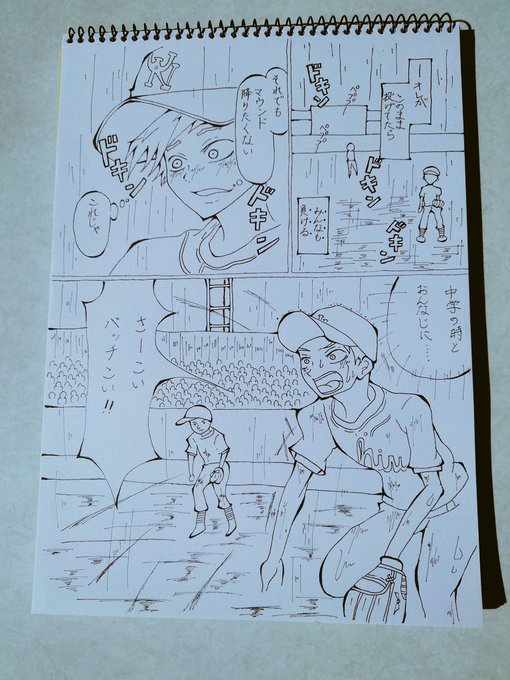 オレが
このまま
投げてたら
ドキン
ドキン
ドキン
みんなも
負ける
それでも
マウンド
降りたくない
ドキン
ドキン
これじゃ
中学の時と
おんなじに……
さーこい
バッチこい!!